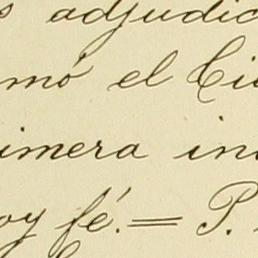 s adjudic
mó el Ci
imera in
oy fé.= P.